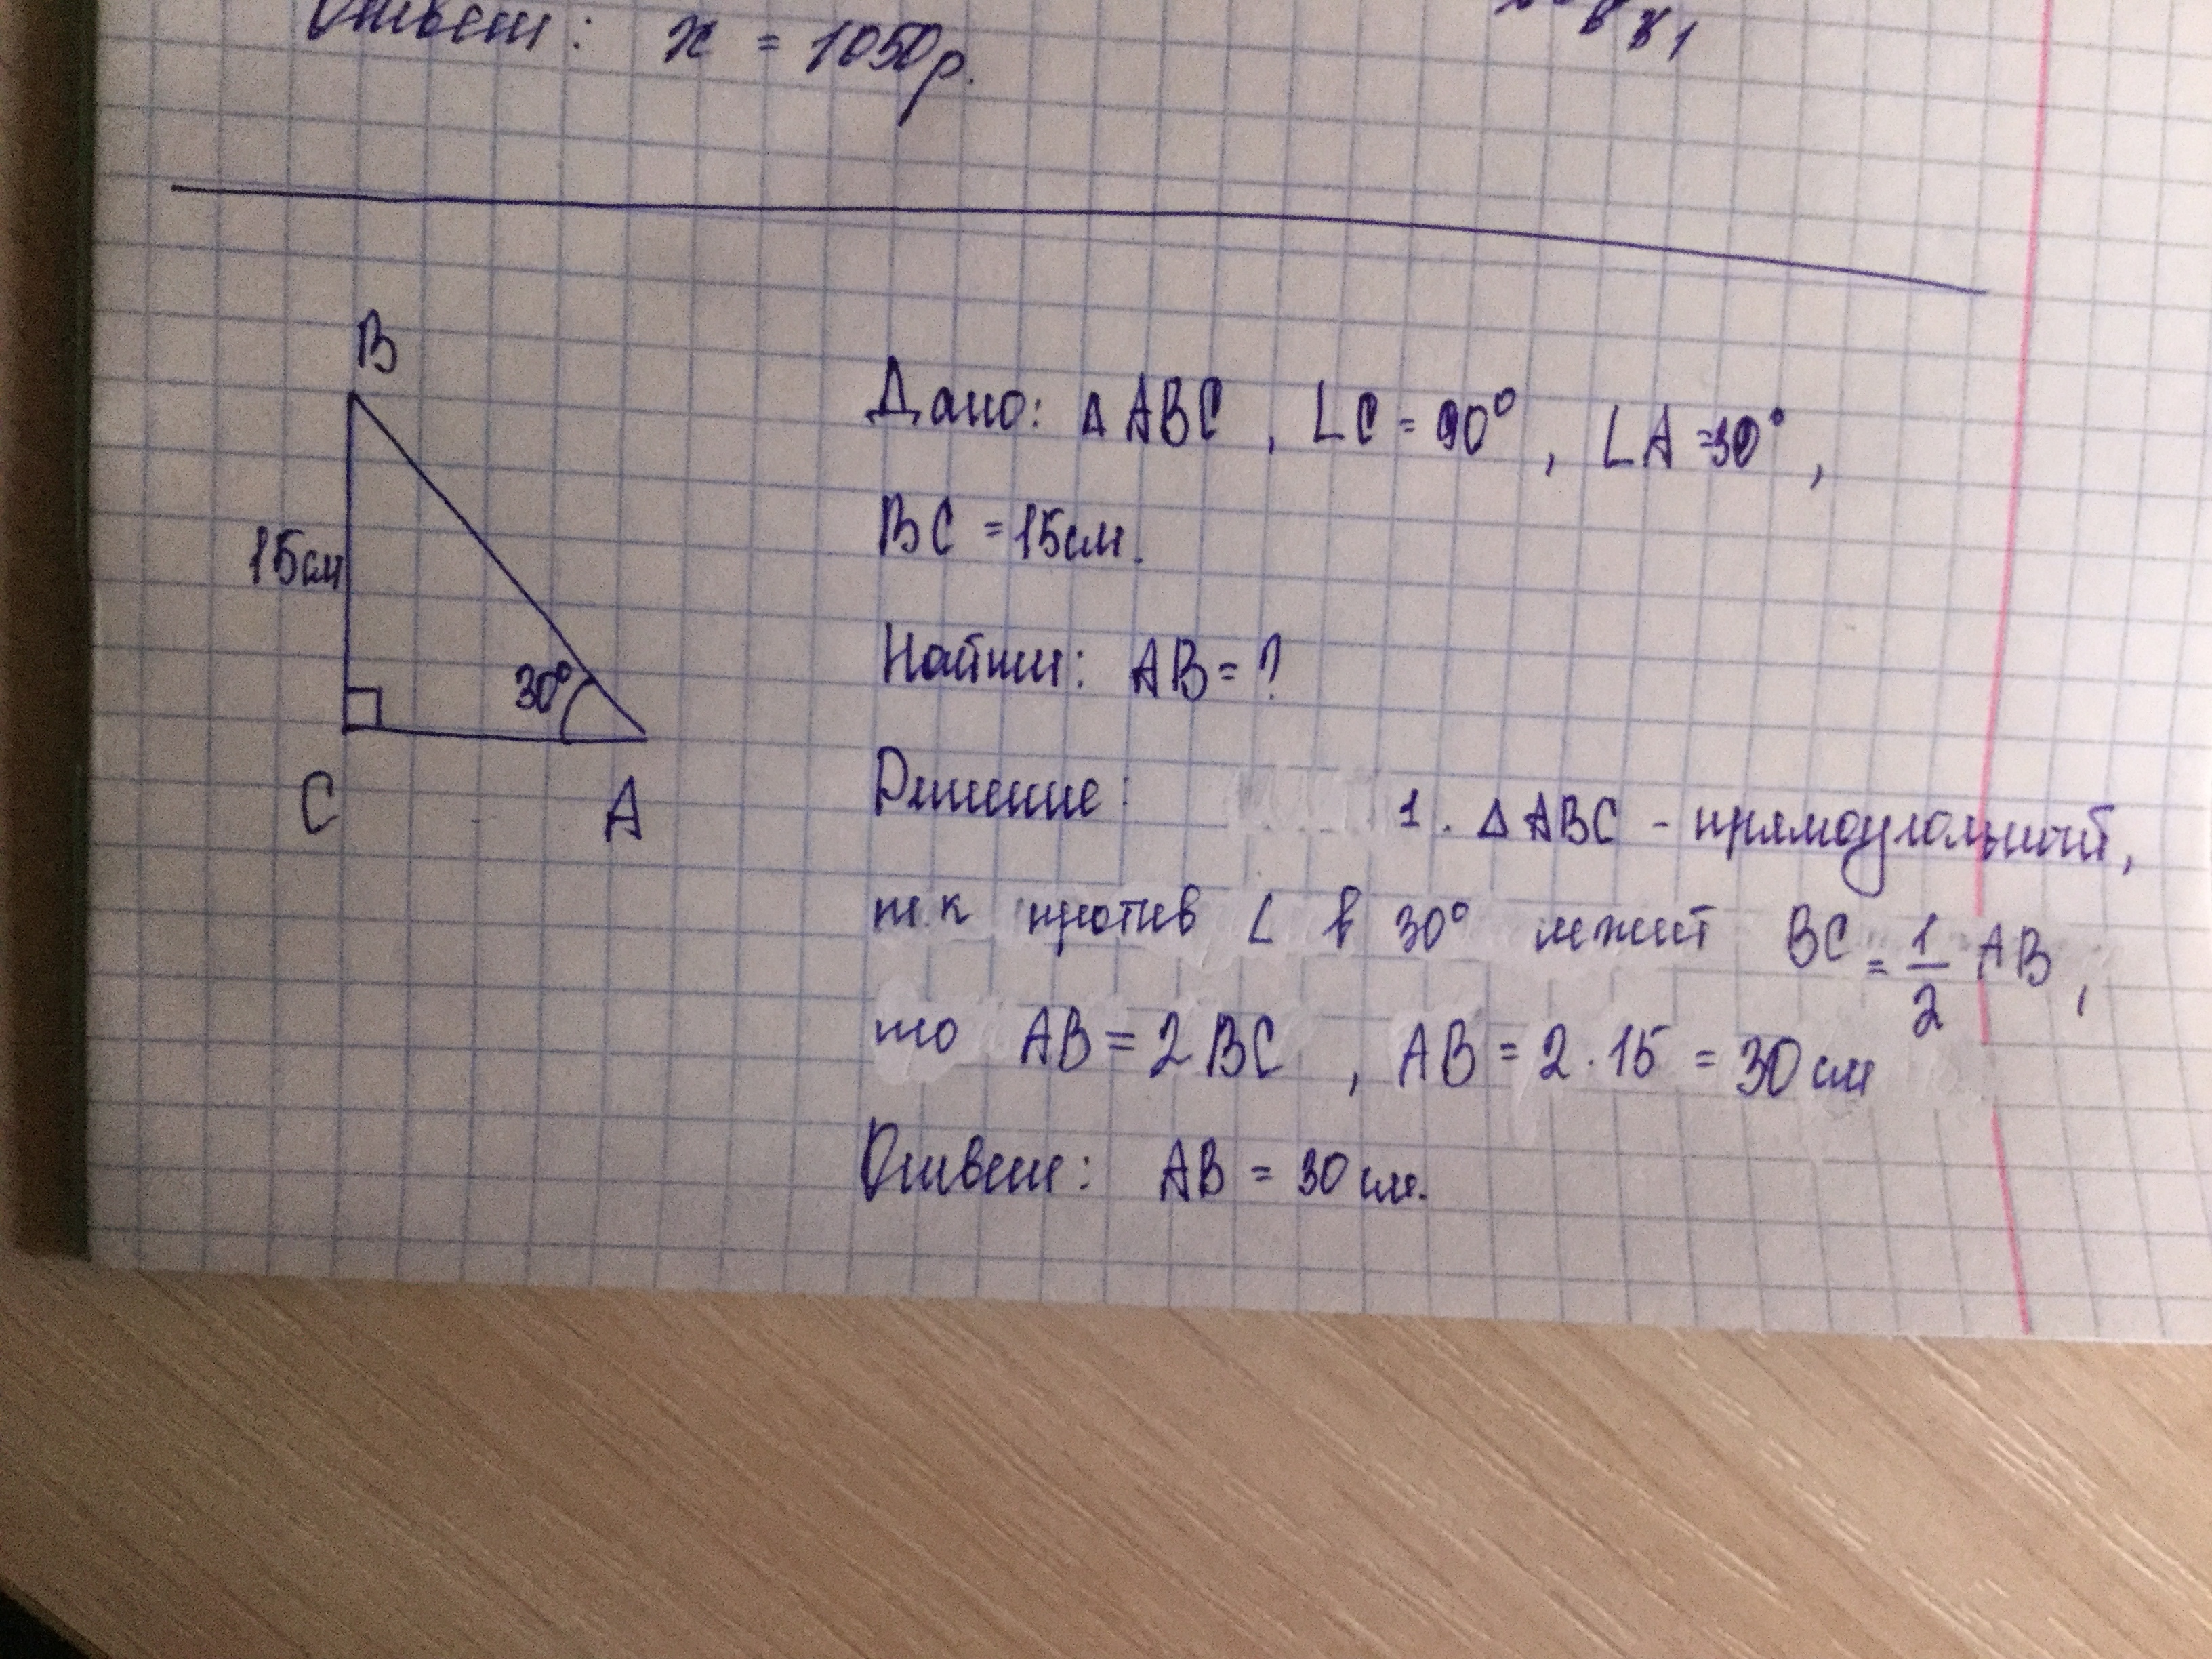 Ответ: х = 1050р.
B
15см
30°
C A
Дано: Δ ABC , ∠C = 90° , ∠A = 30° ,
BC = 15см.
Найти: AB = ?
Решение: 1. Δ ABC - прямоугольный,
т.к против ∠ в 30° лежит BC = 1/2 AB ,
то AB = 2 BC , AB = 2 · 15 = 30 см
Ответ: AB = 30 см.